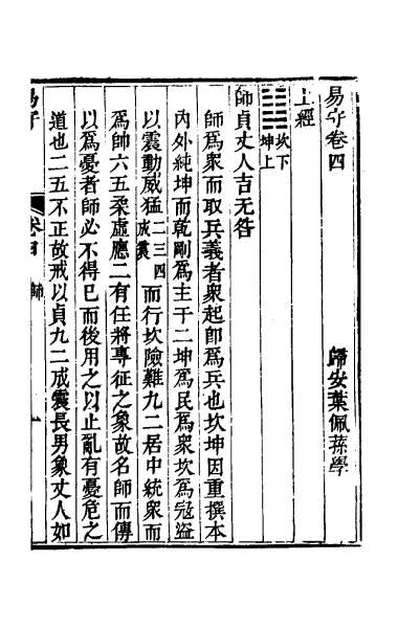 易守卷四
歸安葉佩蓀學
上經
坎下
坤上
師貞丈人吉无咎
師爲衆而取兵義者衆起卽爲兵也坎坤因重撰本
內外純坤而乾剛爲主于二坤爲民爲衆坎爲冦盜
以震動威猛二三四成震而行坎險難九二居中統衆而
爲帥六五柔虛應二有任將專征之象故名師而傳
以爲憂者師必不得已而後用之以止亂有憂危之
道也二五不正故戒以貞九二成震長男象丈人如
易守
卷四
師
一